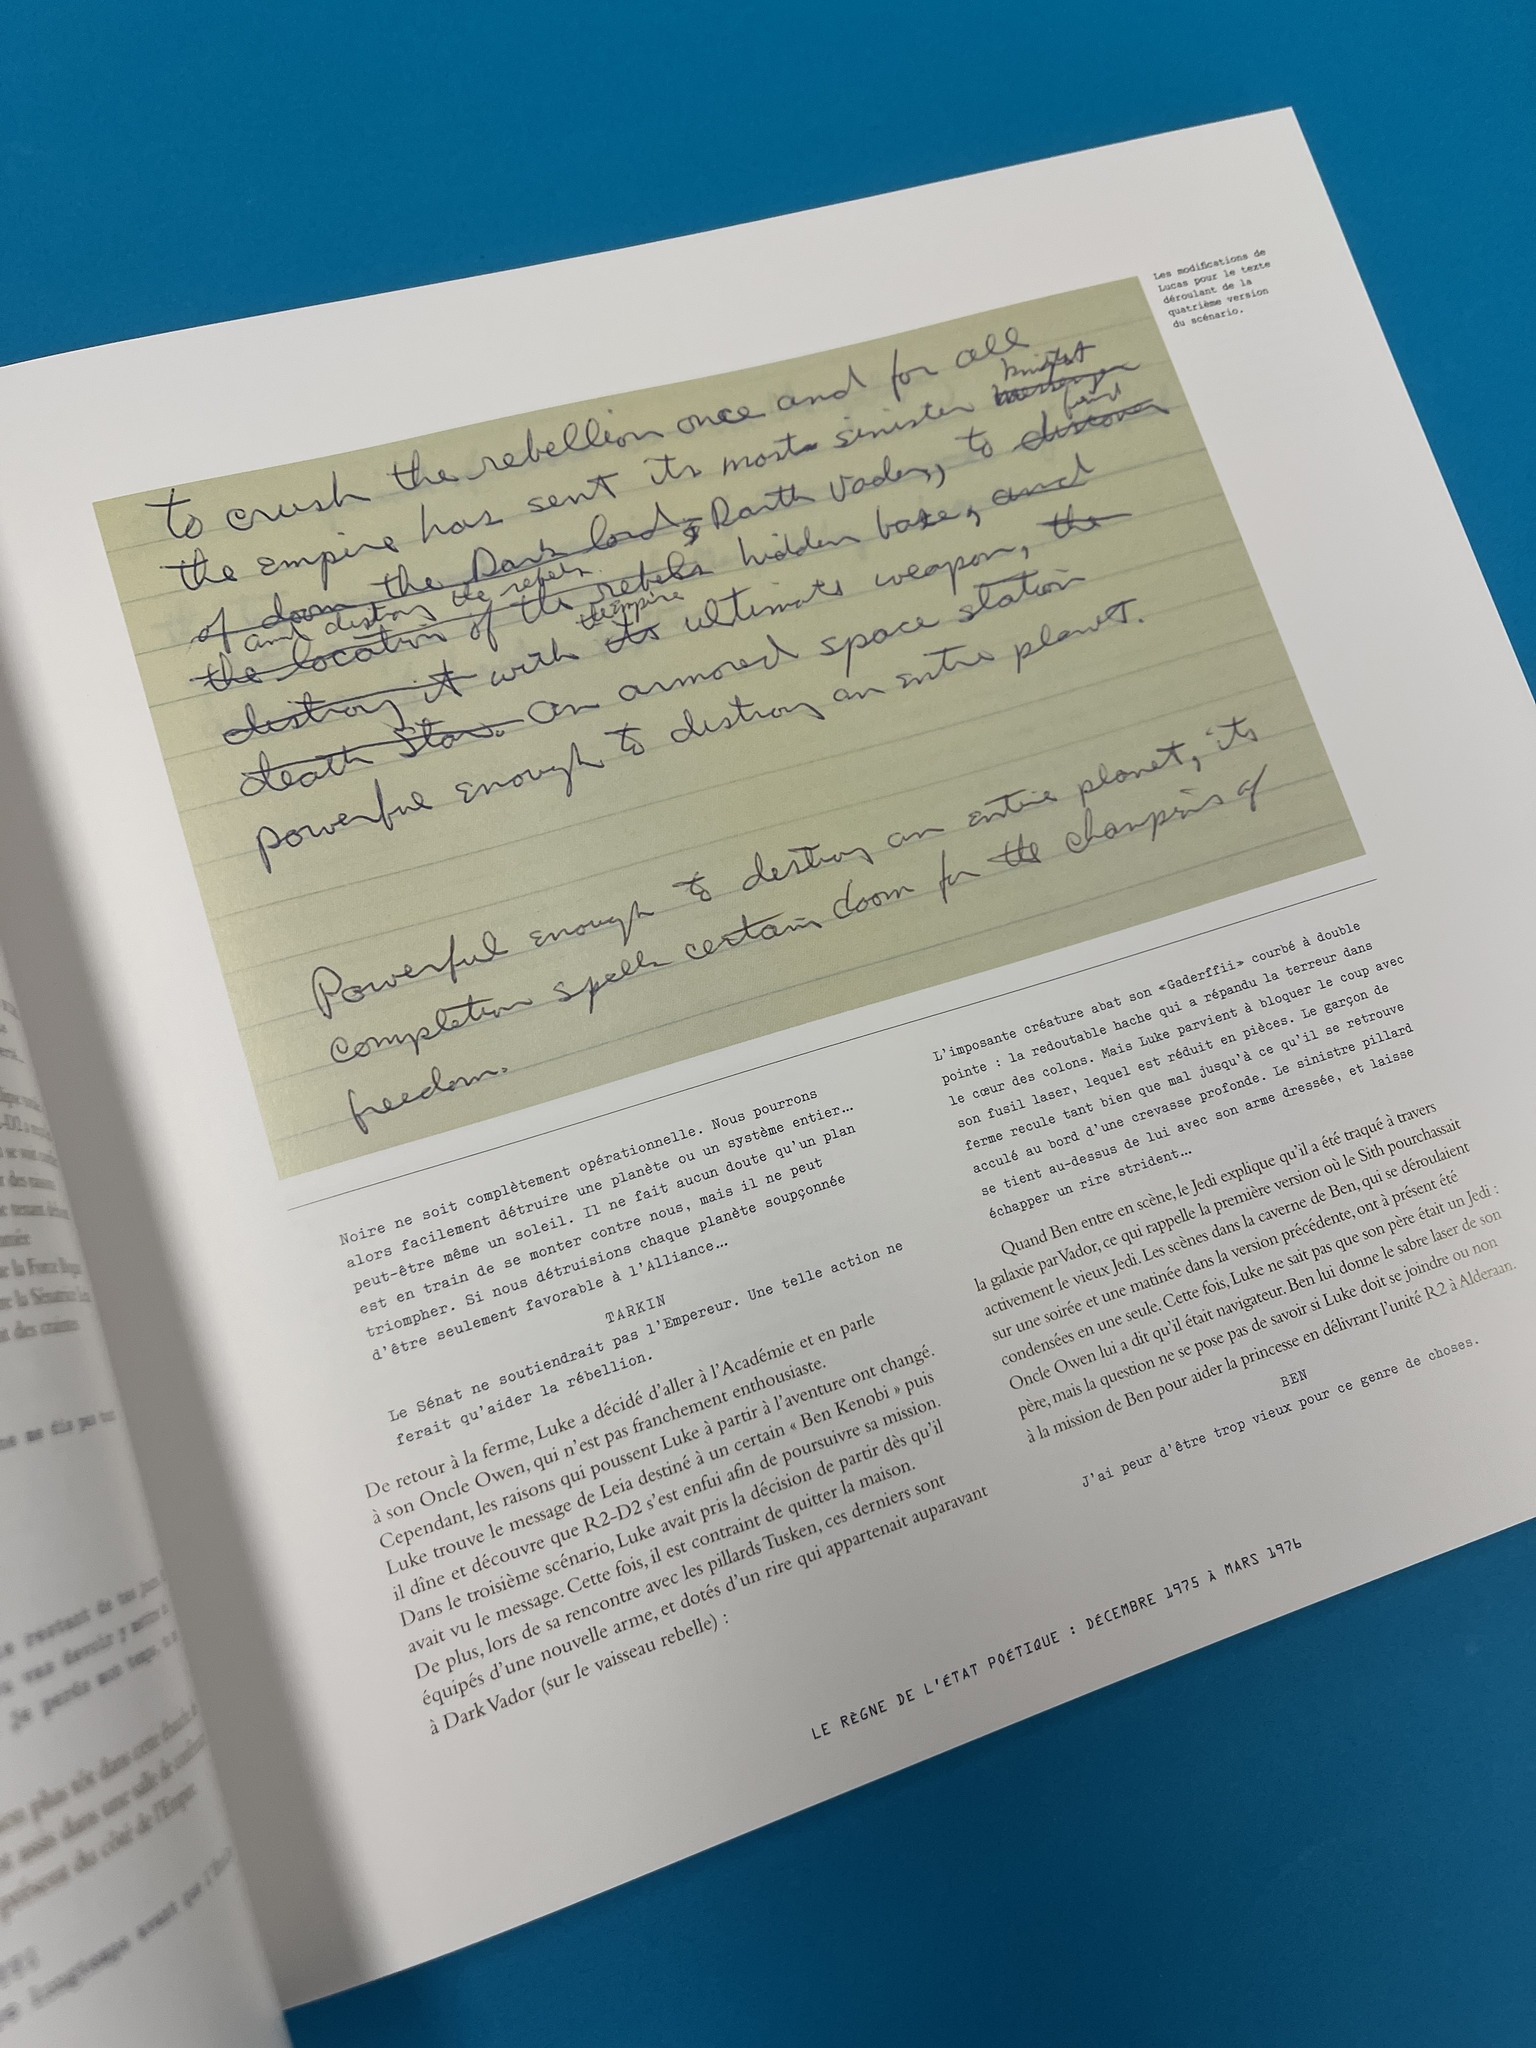 Les modifications de
Lucas pour le texte
déroulant de la
quatrième version
du scénario.
to crush the rebellion once and for all
knight
the empire has sent its most sinister messenger
find
of doom the Dark lord, Darth Vader, to discover
and destroy the rebels
the location of the rebels hidden base, and
the empire
destroy it with its ultimate weapon, the
death Star. An armored space station
powerful enough to destroy an entire planet.
Powerful enough to destroy an entire planet, its
completion spells certain doom for the champions of
freedom.
Noire ne soit complètement opérationnelle. Nous pourrons
alors facilement détruire une planète ou un système entier...
peut-être même un soleil. Il ne fait aucun doute qu'un plan
est en train de se monter contre nous, mais il ne peut
triompher. Si nous détruisions chaque planète soupçonnée
d'être seulement favorable à l'Alliance...
TARKIN
Le Sénat ne soutiendrait pas l'Empereur. Une telle action ne
ferait qu'aider la rébellion.
De retour à la ferme, Luke a décidé d'aller à l'Académie et en parle
à son Oncle Owen, qui n'est pas franchement enthousiaste.
Cependant, les raisons qui poussent Luke à partir à l'aventure ont changé.
Luke trouve le message de Leia destiné à un certain « Ben Kenobi » puis
il dîne et découvre que R2-D2 s'est enfui afin de poursuivre sa mission.
Dans le troisième scénario, Luke avait pris la décision de partir dès qu'il
avait vu le message. Cette fois, il est contraint de quitter la maison.
De plus, lors de sa rencontre avec les pillards Tusken, ces derniers sont
équipés d'une nouvelle arme, et dotés d'un rire qui appartenait auparavant
à Dark Vador (sur le vaisseau rebelle) :
L'imposante créature abat son «Gaderffii» courbé à double
pointe : la redoutable hache qui a répandu la terreur dans
le cœur des colons. Mais Luke parvient à bloquer le coup avec
son fusil laser, lequel est réduit en pièces. Le garçon de
ferme recule tant bien que mal jusqu'à ce qu'il se retrouve
acculé au bord d'une crevasse profonde. Le sinistre pillard
se tient au-dessus de lui avec son arme dressée, et laisse
échapper un rire strident...
Quand Ben entre en scène, le Jedi explique qu'il a été traqué à travers
la galaxie par Vador, ce qui rappelle la première version où le Sith pourchassait
activement le vieux Jedi. Les scènes dans la caverne de Ben, qui se déroulaient
sur une soirée et une matinée dans la version précédente, ont à présent été
condensées en une seule. Cette fois, Luke ne sait pas que son père était un Jedi :
Oncle Owen lui a dit qu'il était navigateur. Ben lui donne le sabre laser de son
père, mais la question ne se pose pas de savoir si Luke doit se joindre ou non
à la mission de Ben pour aider la princesse en délivrant l'unité R2 à Alderaan.
BEN
J'ai peur d'être trop vieux pour ce genre de choses.
LE RÈGNE DE L'ÉTAT POÉTIQUE : DÉCEMBRE 1975 À MARS 1976